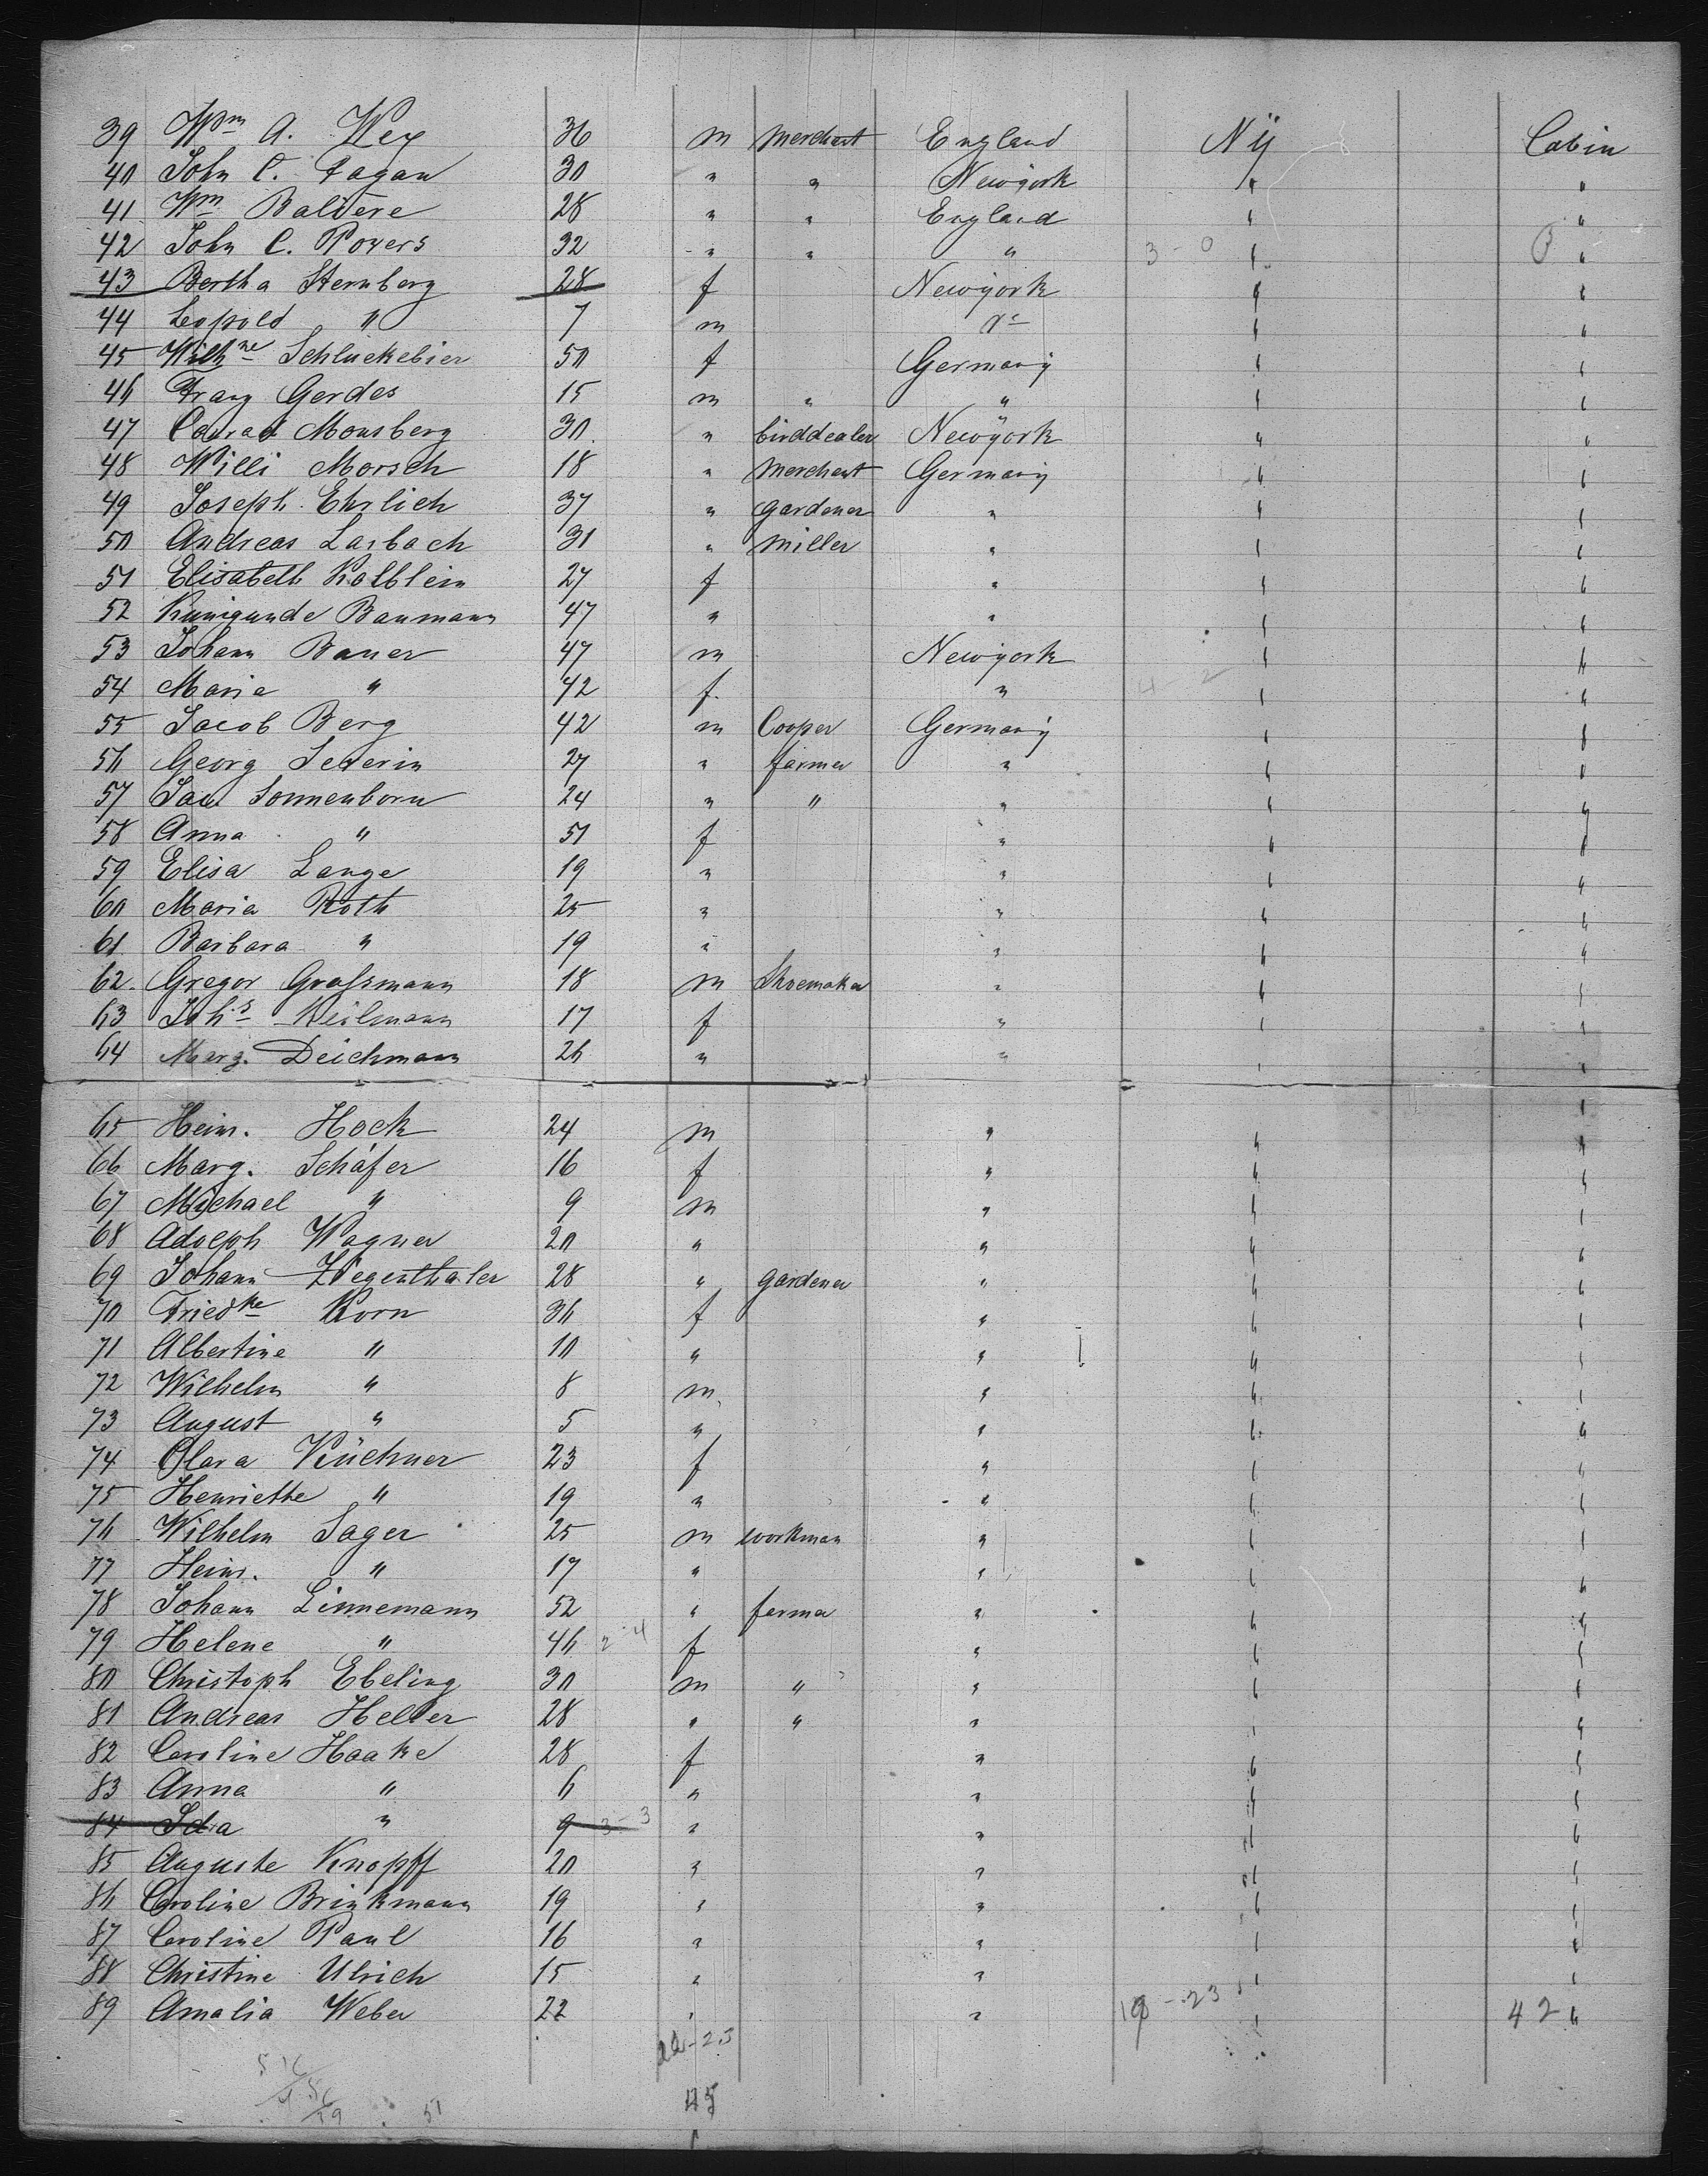 39 Wm A. Wey 36 m Merchant England NY Cabin
40 John C. Fagan 30 " " Newÿork " "
41 Wm Baliere 28 " " England " "
42 John C. Powers 32 " " " 3-0 " "
43 Bertha Sternberg 28 f Newÿork " "
44 Leopold " 7 m do " "
45 Wilhne Schluckebier 50 f Germanÿ " "
46 Franz Gerdes 15 m " " " "
47 Conrad Monsberg 30 " birddealer Newÿork " "
48 Willi Morsch 18 " Merchant Germanÿ " "
49 Joseph Ehrlich 37 " gardener " " "
50 Andreas Lasbach 31 " miller " " "
51 Elisabeth Kalblein 27 f " " "
52 Kunigunde Baumann 47 " " " "
53 Johann Bauer 47 m Newÿork " "
54 Maria " 42 f. " 4 2 " "
55 Jacob Berg 42 m Cooper Germanÿ " "
56 Georg Severin 27 " farmer " " "
57 Sonnenborn 24 " " " " "
58 Anna " 51 f " " "
59 Elisa Lange 19 " " " "
60 Maria Roth 25 " " " "
61 Barbara " 19 " " " "
62. Gregor Graſsmann 18 m Shoemaker " " "
63 Johs Heilmann 17 f " " "
64 Marg. Deichmann 26 " " " "
65 Heinr. Hock 24 m " " "
66 Marg. Schäfer 16 f " " "
67 Michael " 9 m " " "
68 Adolph Wagner 20 " " " "
69 Johann Ziegenthaler 28 " gardener " " "
70 Friedke Korn 36 f " " "
71 Albertine " 10 " " " "
72 Wilhelm " 8 m " " "
73 August " 5 " " " "
74 Clara Küchner 23 f " " "
75 Henriette " 19 " " " "
76 Wilhelm Sager 25 m workman " " "
77 Heinr. " 17 " " " "
78 Johann Linnemann 52 " farmer " " "
79 Helene " 46 2 4 f " " "
80 Christoph Ebeling 30 m " " " "
81 Andreas Heller 28 " " " " "
82 Caroline Haake 28 f " " "
83 Anna " 6 " " " "
84 Ida " 9 3-3 " " " "
85 Auguste Knopff 20 " " " "
86 Caroline Brinkmann 19 " " " "
87 Caroline Paul 16 " " " "
88 Christine Ulrich 15 " " " "
89 Amalia Weber 22 " " 19-23 " 42 "
22-23
51
45